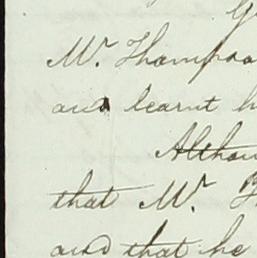 Mr. Thompson
and learnt h
Althou
that Mr.
and that he